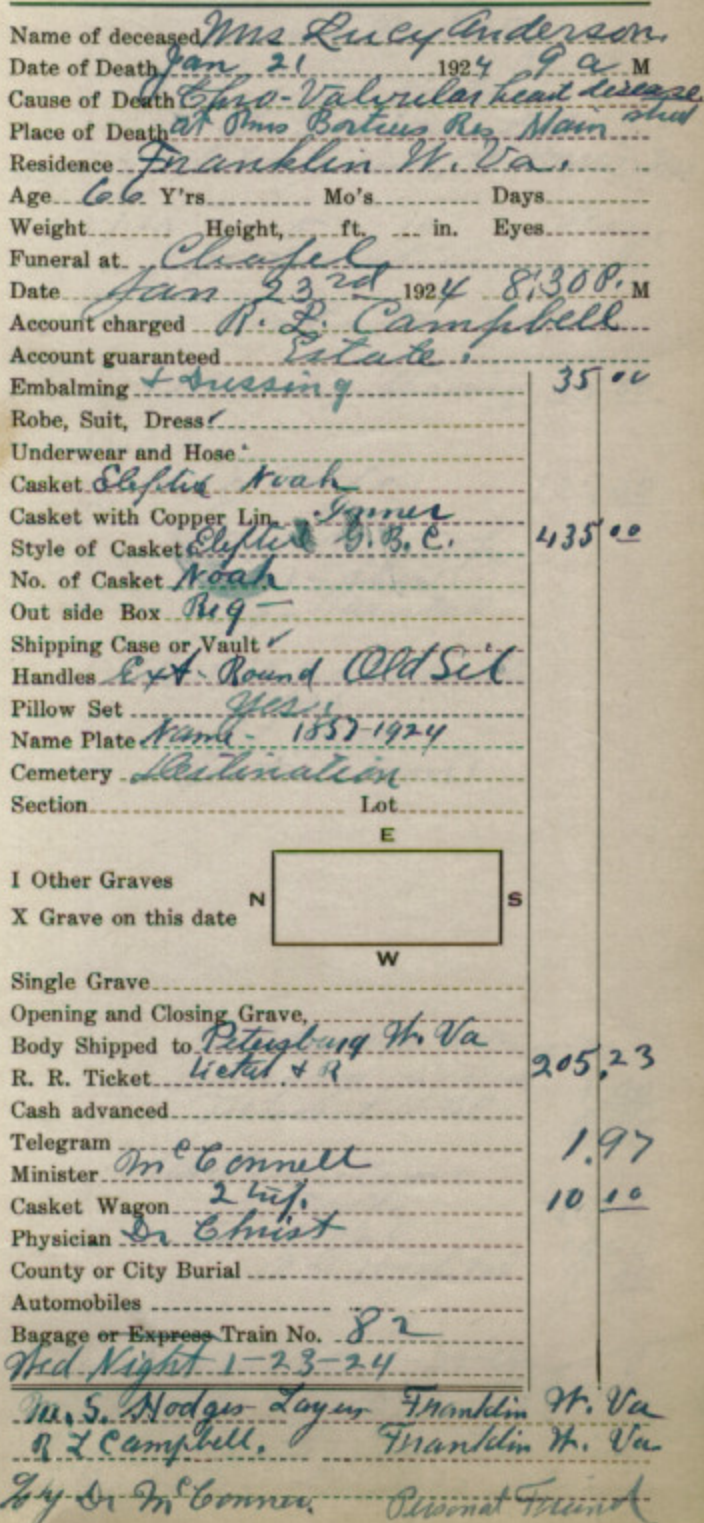 Name of deceased Mrs Lucy Anderson
Date of Death Jan 21 1924 9 a M
Cause of Death Chro-Valvular heart disease
Place of Death at Mrs Res Main street
Residence Franklin W. Va.
Age 66 Y'rs Mo's Days
Weight Height, ft. in. Eyes
Funeral at Chapel
Date Jan 23rd 1924 8:30 P. M
Account charged R. L. Campbell
Account guaranteed Estate.
Embalming + Dressing 35 00
Robe, Suit, Dress ✓
Underwear and Hose
Casket Noah
Casket with Copper Lin. Inner
Style of Casket G.B.C. 435 00
No. of Casket Noah
Out side Box Reg -
Shipping Case or Vault ✓
Handles Ext. Round Old Sil
Pillow Set Yes
Name Plate Name - 1857-1924
Cemetery Destination
Section Lot
E
I Other Graves
N S
X Grave on this date
W
Single Grave
Opening and Closing Grave,
Body Shipped to Petersburg W. Va
R. R. Ticket + R 205.23
Cash advanced
Telegram 1.97
Minister McConnell
Casket Wagon 2 10 00
Physician Dr Christ
County or City Burial
Automobiles
Bagage or Express Train No. 82
Wed Night 1-23-24
M. S. Hodges Franklin W. Va
R L Campbell. Franklin W. Va
Dr Personal Friend